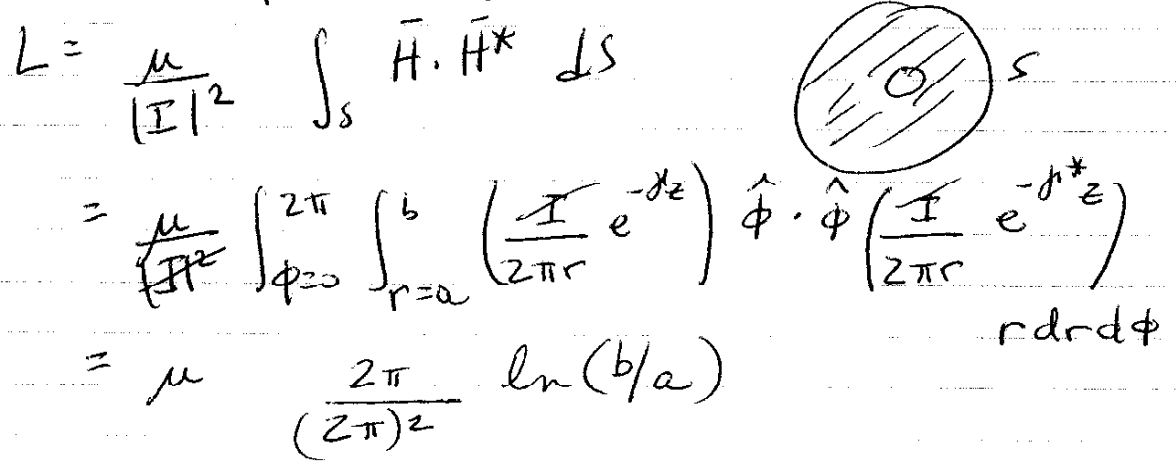 L = μ/|I|² ∫_S H̄ · H̄* dS
S
= μ/|I|² ∫_{φ=0}^{2π} ∫_{r=a}^{b} (I/2πr e^{-γz}) φ̂ · φ̂ (I/2πr e^{-γ*z})
r dr dφ
= μ 2π/(2π)² ln(b/a)